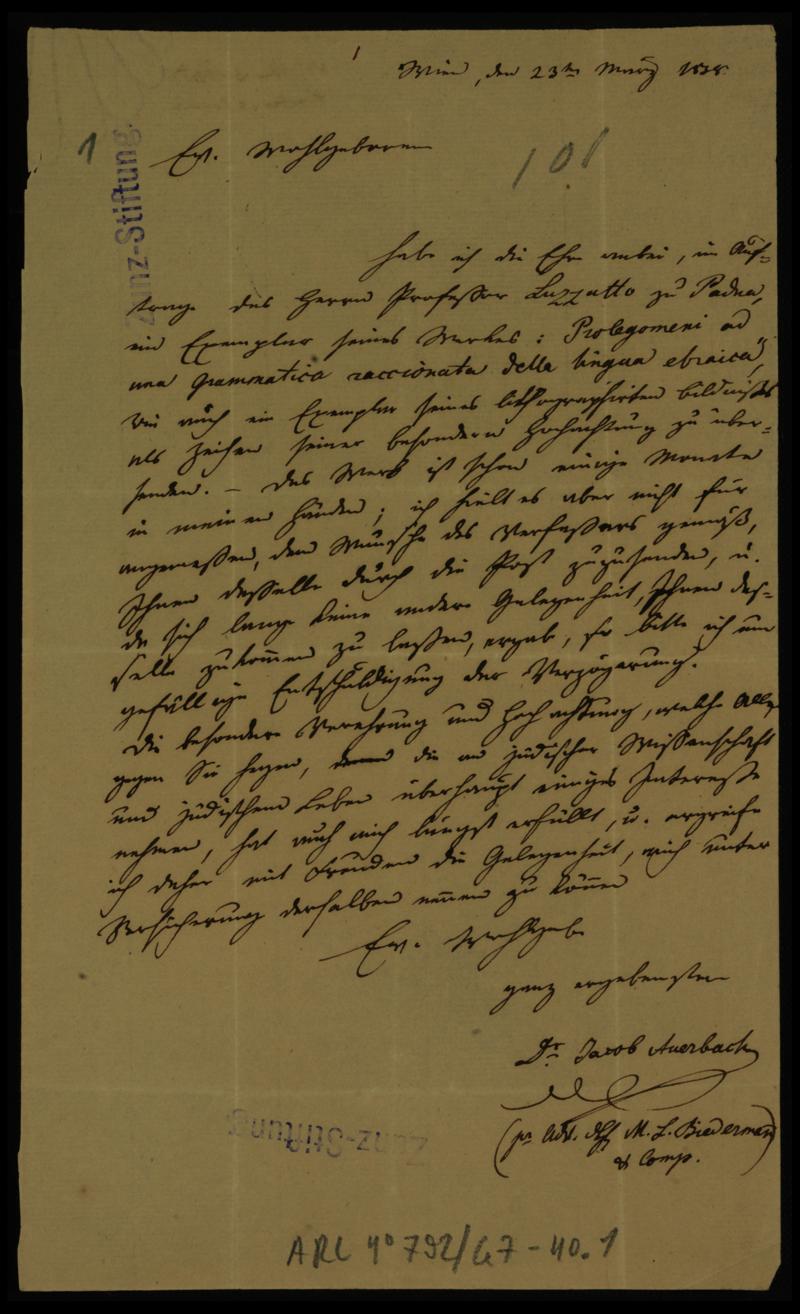 Wien, den 23ten März 1838
1
Ew. Wohlgeboren
101
Zunz-Stiftung.
habe ich die Ehre anbei, im Auf-
trage des Herrn Professor Luzzatto zu Padua,
ein Exemplar seines Werkes: Prolegomeni ad
una grammatica raccionata della lingua ebraica",
wie auch ein Exemplar seines lithographirten Bildnisses
als Zeichen seiner besondern Hochachtung zu über-
senden. – Das Werk ist schon einige Monate
in meinen Händen; ich hielt es aber nicht für
angemessen, dem Wunsche des Verfassers gemäß,
Ihnen dasselbe durch die Post zuzusenden, u.
da sich lange keine andere Gelegenheit, Ihnen das-
selbe zukommen zu lassen, ergab, so bitte ich um
gefällige Entschuldigung der Verzögerung.
Die besondere Verehrung und Hochachtung, welche Alle
gegen Sie hegen, die an jüdischer Wissenschaft
und jüdischem Leben überhaupt einiges Interesse
nehmen, hat auch mich längst erfüllt, u. ergreife
ich daher mit Freuden die Gelegenheit, mich unter
Versicherung derselben nennen zu können
Ew. Wohlgeb.
ganz ergebensten
Dr. Jacob Auerbach
(pr Adr. M. L. Biederman
& Comp.)
Zunz-Stiftung.
ARC 4° 792/G7-40.1